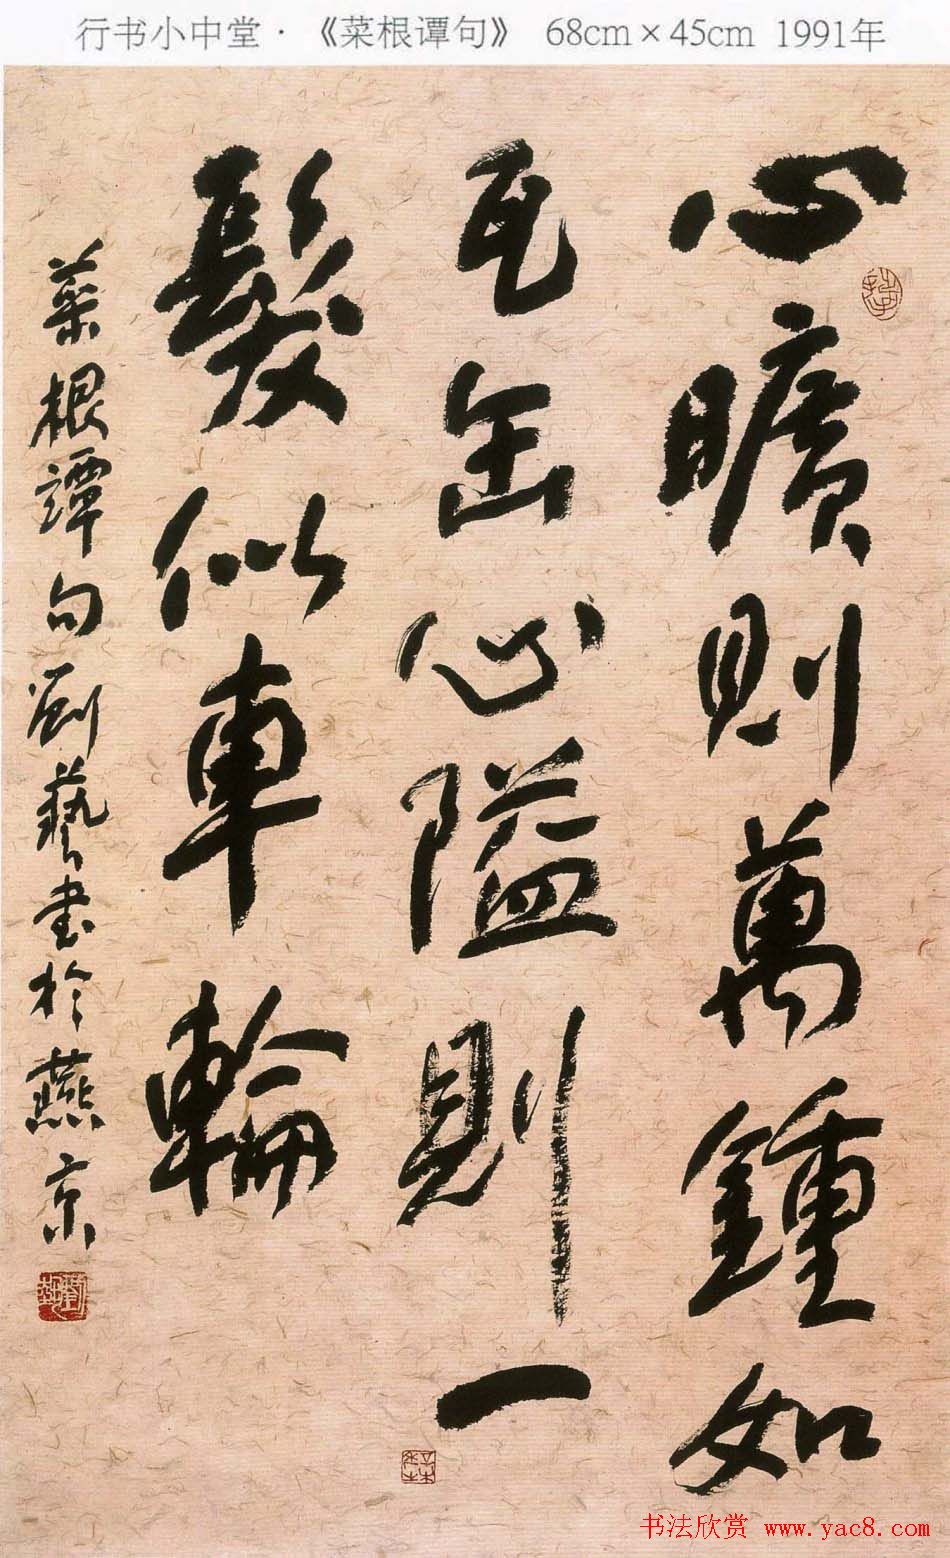 行书小中堂·《菜根谭句》 68cm×45cm 1991年
心曠則萬鍾如
瓦缶心隘則一
髮似車輪
菜根譚句劉藝書於燕京
书法欣赏 www.yac8.com